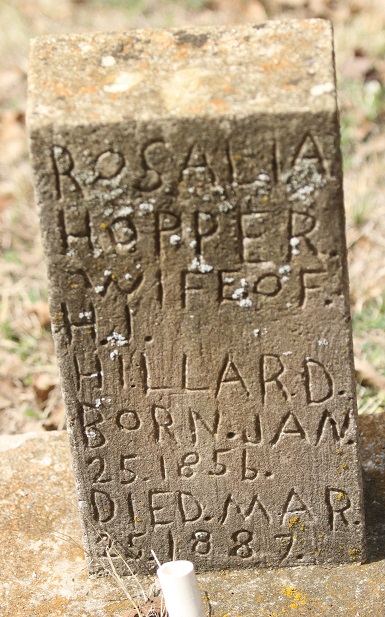 ROSALIA
HOPPER.
WIFE OF.
H.J.
HILLARD.
BORN. JAN.
25. 1856.
DIED. MAR.
25. 1887.